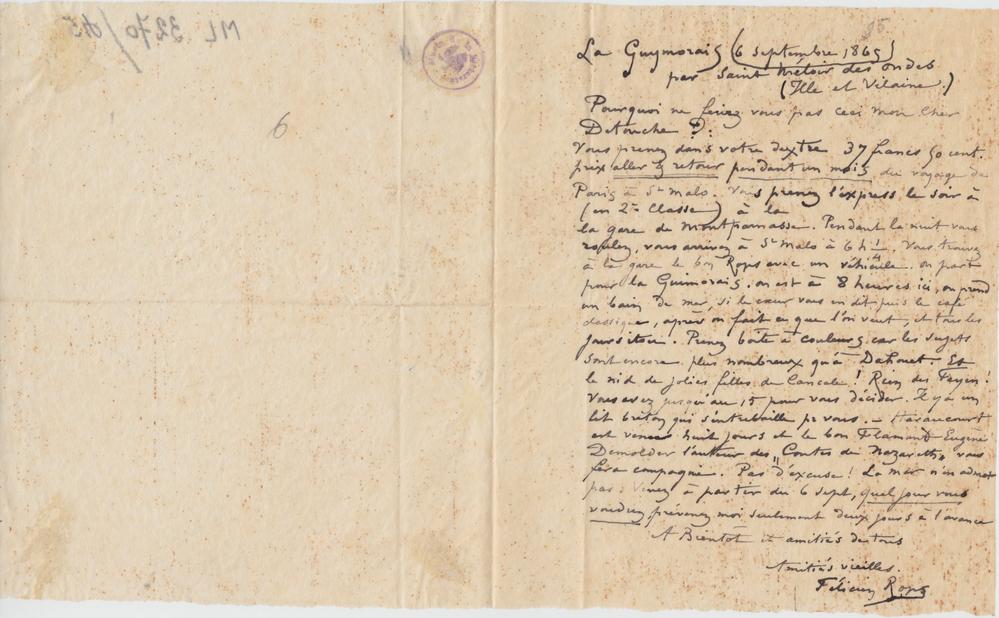 ML 3270/45
6
La Guymorais (6 septembre 1865)
par Saint Méloir des ondes
(Ille et Vilaine.)
Pourquoi ne feriez vous pas ceci mon cher
Detouche ?:
Vous prenez dans votre dextre 37 francs 50 cent.
prix aller & retour pendant un mois du voyage de
Paris à St Malo. Vous prenez l'express le soir à
(en 2e classe) à la
la gare de Montparnasse. Pendant la nuit vous
roulez, vous arrivez à St Malo à 6 h 1/4, vous trouvez
à la gare le bon Rops avec un véhicule, on part
pour la Guimorais. on est à 8 heures ici, on prend
un bain de mer, si le cœur vous en dit puis le café
classique, après on fait ce que l'on veut, et tous les
jours itou. Prenez boîte à couleurs car les sujets
sont encore plus nombreux qu'à Dahouet. Et
le nid de jolies filles de Cancale! Rien des Payen!
Vous avez jusqu'au 15 pour vous décider. Il y a un
lit breton qui s'entrebaille pr vous. –
est venu huit jours et le bon Flamand Eugène
Demolder l'auteur des "Contes de Nazareth" vous
fera compagnie. Pas d'excuse! La mer n'en admet
pas, venez à partir du 6 sept, quel jour vous
voudrez prévenez moi seulement deux jours à l'avance
A Bientôt et amitiés de tous
Amitiés vieilles.
Félicien Rops